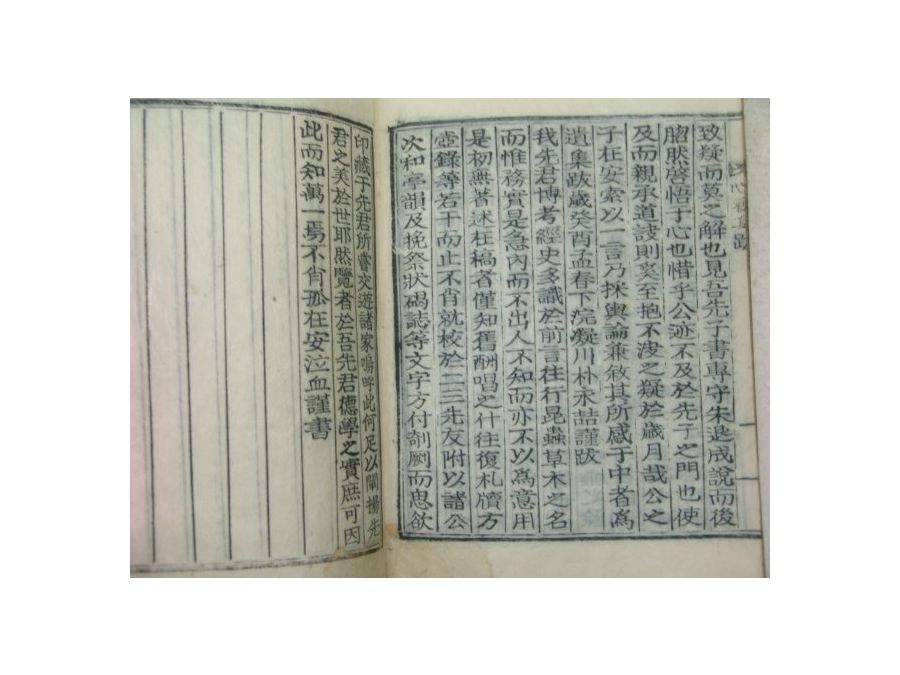 致疑而莫之解也見吾先子書專守朱退成說而後
脗然啓悟于心也惜乎公迹不及於先子之門也使
及而親承道談則奚至抱不決之疑於歲月哉公之
子在安索以一言乃採輿論兼敘其所感于中者爲
遺集跋歲癸酉血春下浣凝川朴永喆謹跋
我先君博考經史多識於前言往行昆蟲草木之名
而惟務實是急內而不出人不知而亦不以爲意用
是初無著述在稿者僅知舊酬唱之什往復札牘方
壺錄等若干而止不肖就校於二三先友附以諸公
次和亭韻及挽祭狀碣誌等文字方付剞劂而思欲
印藏于先君所嘗交遊諸家嗚呼此何足以闡揚先
君之美於世耶然覽者於吾先君德學之實庶可因
此而知萬一焉不肖孤在安泣血謹書